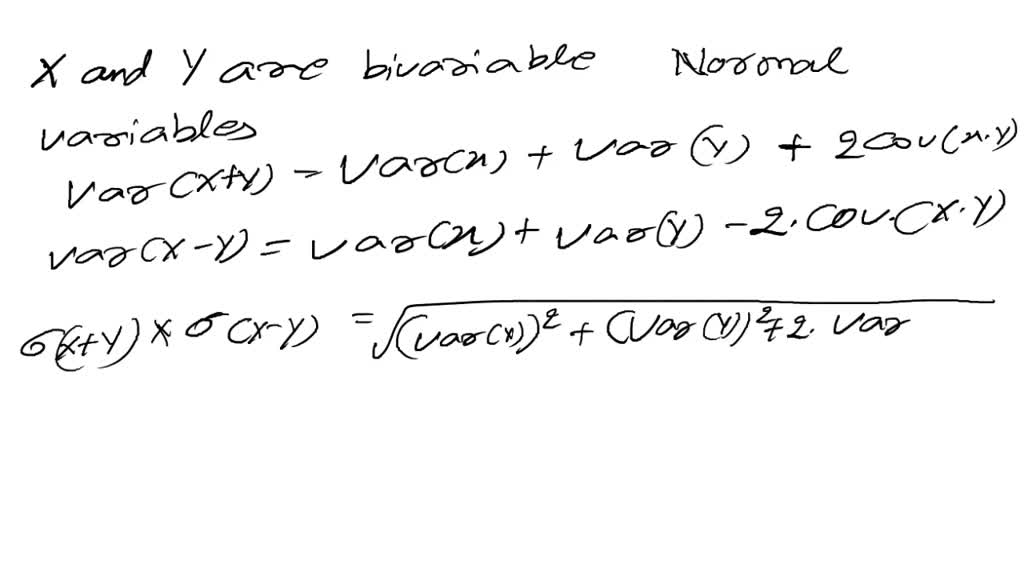 X and Y are bivariable Normal
variables
Var(X+Y) = Var(x) + Var(Y) + 2Cov(x.Y)
Var(X-Y) = Var(x) + Var(Y) - 2.Cov.(X.Y)
σ(X+Y) × σ(X-Y) = √(Var(X))² + (Var(Y))² + 2. Var